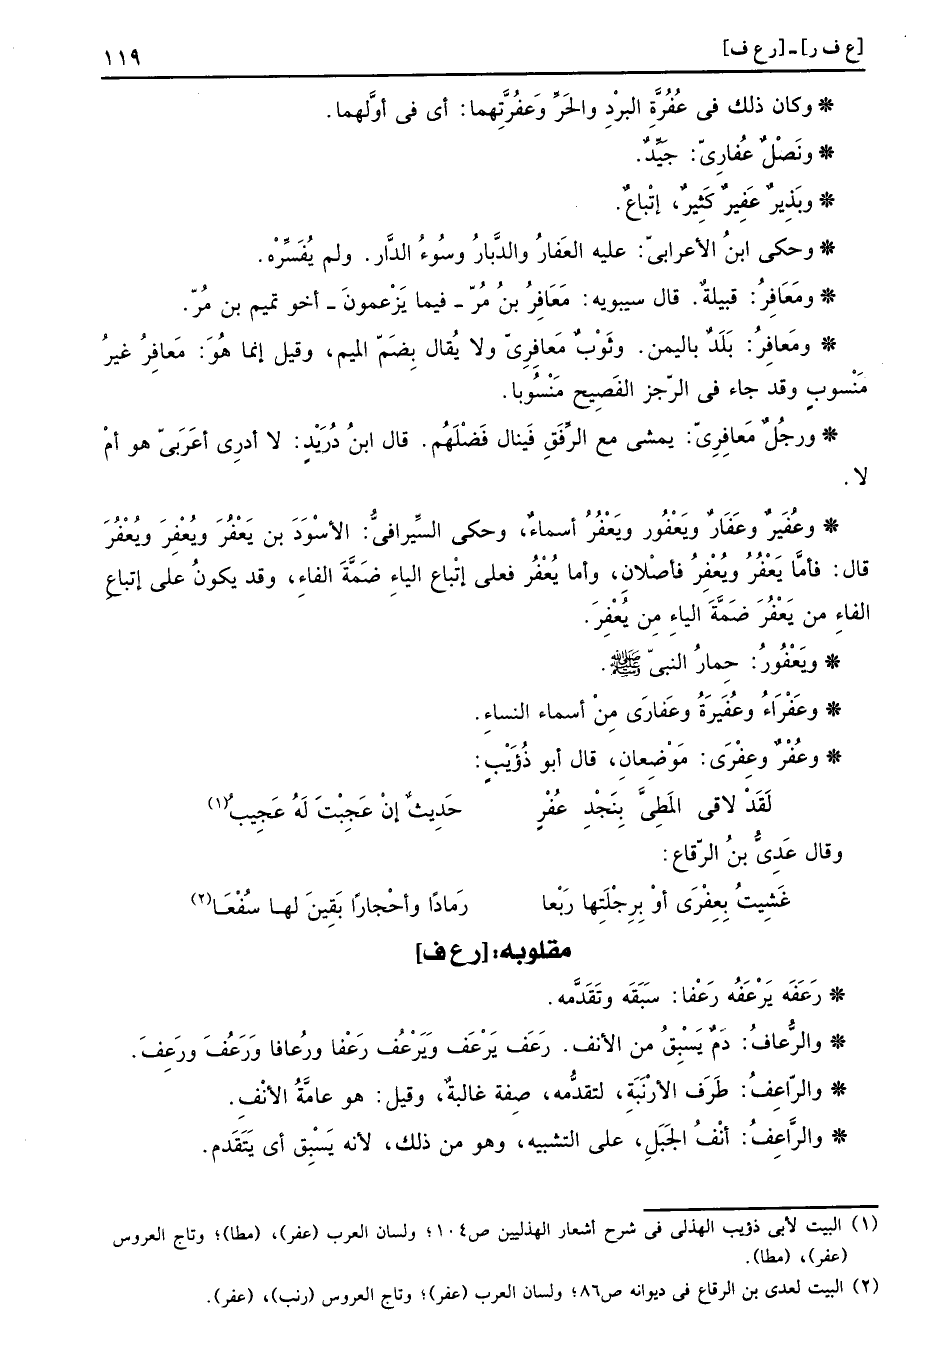 [ع ف ر] - [ر ع ف] ١١٩
* وكان ذلك فى عُفُرَّةِ البرْدِ والحَرِّ وَعفُرَّتِهما: أى فى أوَّلهما.
* ونَصْلٌ عُفارِىّ: جَيِّدٌ.
* وبَذِيرٌ عَفِيرٌ كَثِيرٌ، إتْباعٌ.
* وحكى ابنُ الأعرابىّ: عليه العَفارُ والدَّبارُ وسُوءُ الدَّار. ولم يُفَسِّرْه.
* ومَعَافِرُ: قبيلةٌ. قال سيبويه: مَعَافِرُ بنُ مُرّ ـ فيما يَزْعمونَ ـ أخو تميم بن مُرّ.
* ومَعافرُ: بَلَدٌ باليمن. وثَوْبٌ مَعافِرِىّ ولا يُقال بِضَمّ الميم، وقيل إنما هُوَ: مَعافرُ غيرُ
مَنْسوبٍ وقد جاء فى الرّجز الفَصِيح مَنْسُوبا.
* ورجُلٌ مَعافِرِىّ: يمشى مع الرِّفَقِ فَينال فَضْلَهُم. قال ابنُ دُرَيْدٍ: لا أدرِى أعَرَبىّ هو أمْ
لا.
* وعُفَيرٌ وعَفَارٌ ويَعْفُور ويَعْفُرُ أسماءٌ، وحكى السِّيرافىُّ: الأسْوَدَ بن يَعْفُرَ ويُعْفِرَ ويُعْفُرَ
قال: فأمَّا يَعْفُرُ ويُعْفِرُ فأصْلانِ، وأما يُعْفُر فعلى إتْباع الياء ضَمَّةَ الفاء، وقد يكونُ على إتباعِ
الفاءِ من يَعْفُرَ ضمَّةَ الياءِ مِن يُعْفِرَ.
* ويَعْفُورُ: حِمارُ النبىّ ﷺ.
* وعَفْرَاءُ وعُفَيرَةُ وعَفارَى مِنْ أسماء النساءِ.
* وعُفْرٌ وعِفْرَى: مَوْضِعانِ، قال أبو ذُؤَيْبٍ:
لَقَدْ لاقى المَطِىَّ بِنَجْدِ عُفْرٍ حَدِيثٌ إنْ عَجِبْتَ لَهُ عَجِيبُ(١)
وقال عَدِىُّ بنُ الرّقاع:
غَشِيتُ بِعِفْرَى أوْ بِرِجْلَتِها رَبْعا رَمادًا وأحْجارًا بَقِينَ لها سُفْعَا(٢)
مقلوبه: [ر ع ف]
* رَعَفَه يَرْعَفُه رَعْفا: سَبَقَه وتَقَدَّمه.
* والرُّعافُ: دَمٌ يَسْبِقُ من الأنف. رَعَف يَرْعَف وَيَرْعُف رَعْفا ورعُافا وَرَعُفَ ورَعِفَ.
* والرّاعِفُ: طَرَف الأرْنَبَةِ، لتقدُّمه، صفة غالبةٌ، وقيل: هو عامَّةُ الأنْفِ.
* والرَّاعِفُ: أنْفُ الجَبَلِ، على التشبيه، وهو من ذلك، لأنه يَسْبِق أى يَتَقَدم.
(١) البيت لأبى ذؤيب الهذلى فى شرح أشعار الهذليين ص١٠٤؛ ولسان العرب (عفر)، (مطا)؛ وتاج العروس
(عفر)، (مطا).
(٢) البيت لعدى بن الرقاع فى ديوانه ص٨٦؛ ولسان العرب (عفر)؛ وتاج العروس (رنب)، (عفر).